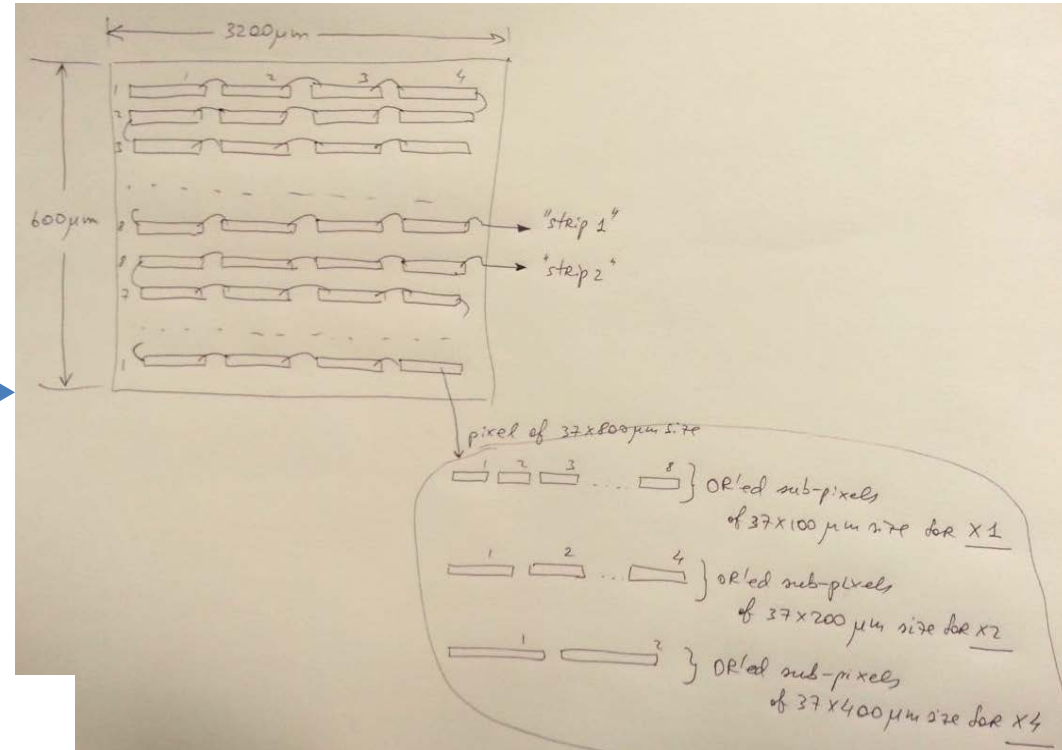 3200μm
1 2 3 4
1
2
3
600μm
8 → "strip 1"
8 → "strip 2"
7
1
pixel of 37x800μm size
1 2 3 .... 8 } OR'ed sub-pixels
of 37x100 μm size for x1
1 2 ... 4 } OR'ed sub-pixels
of 37x200 μm size for x2
1 2 } OR'ed sub-pixels
of 37x400 μm size for x4